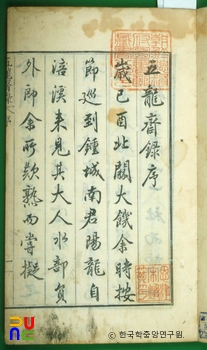 五龍齋錄序
歲己酉北關大饑余時按
節巡到鍾城南君陽龍自
涪溪来見其大人水部員
外郎余所歎熟而嘗擬
ⓒ한국학중앙연구원